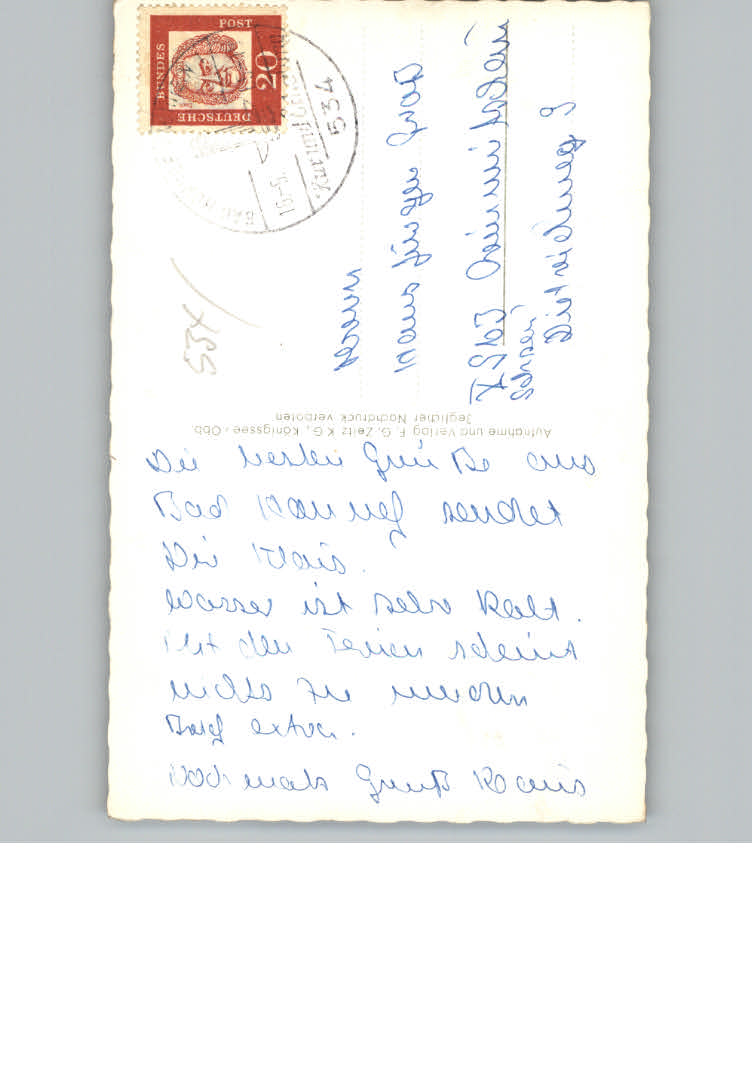 DEUTSCHE
BUNDES
POST
20
534
53X
Herrn
Hans Jürgen Graß
X 9163 Dietrichweg 9
Aufnahme und Verlag F. G. Zeitz K G., Königssee-Obb
Jeglicher Nachdruck verboten
Die besten Grüße aus
Bad sendet
Dir Klaus.
Wasser ist sehr kalt.
Mit den Ferien scheint
nichts zu werden
Brief extra.
Nochmals Gruß Klaus